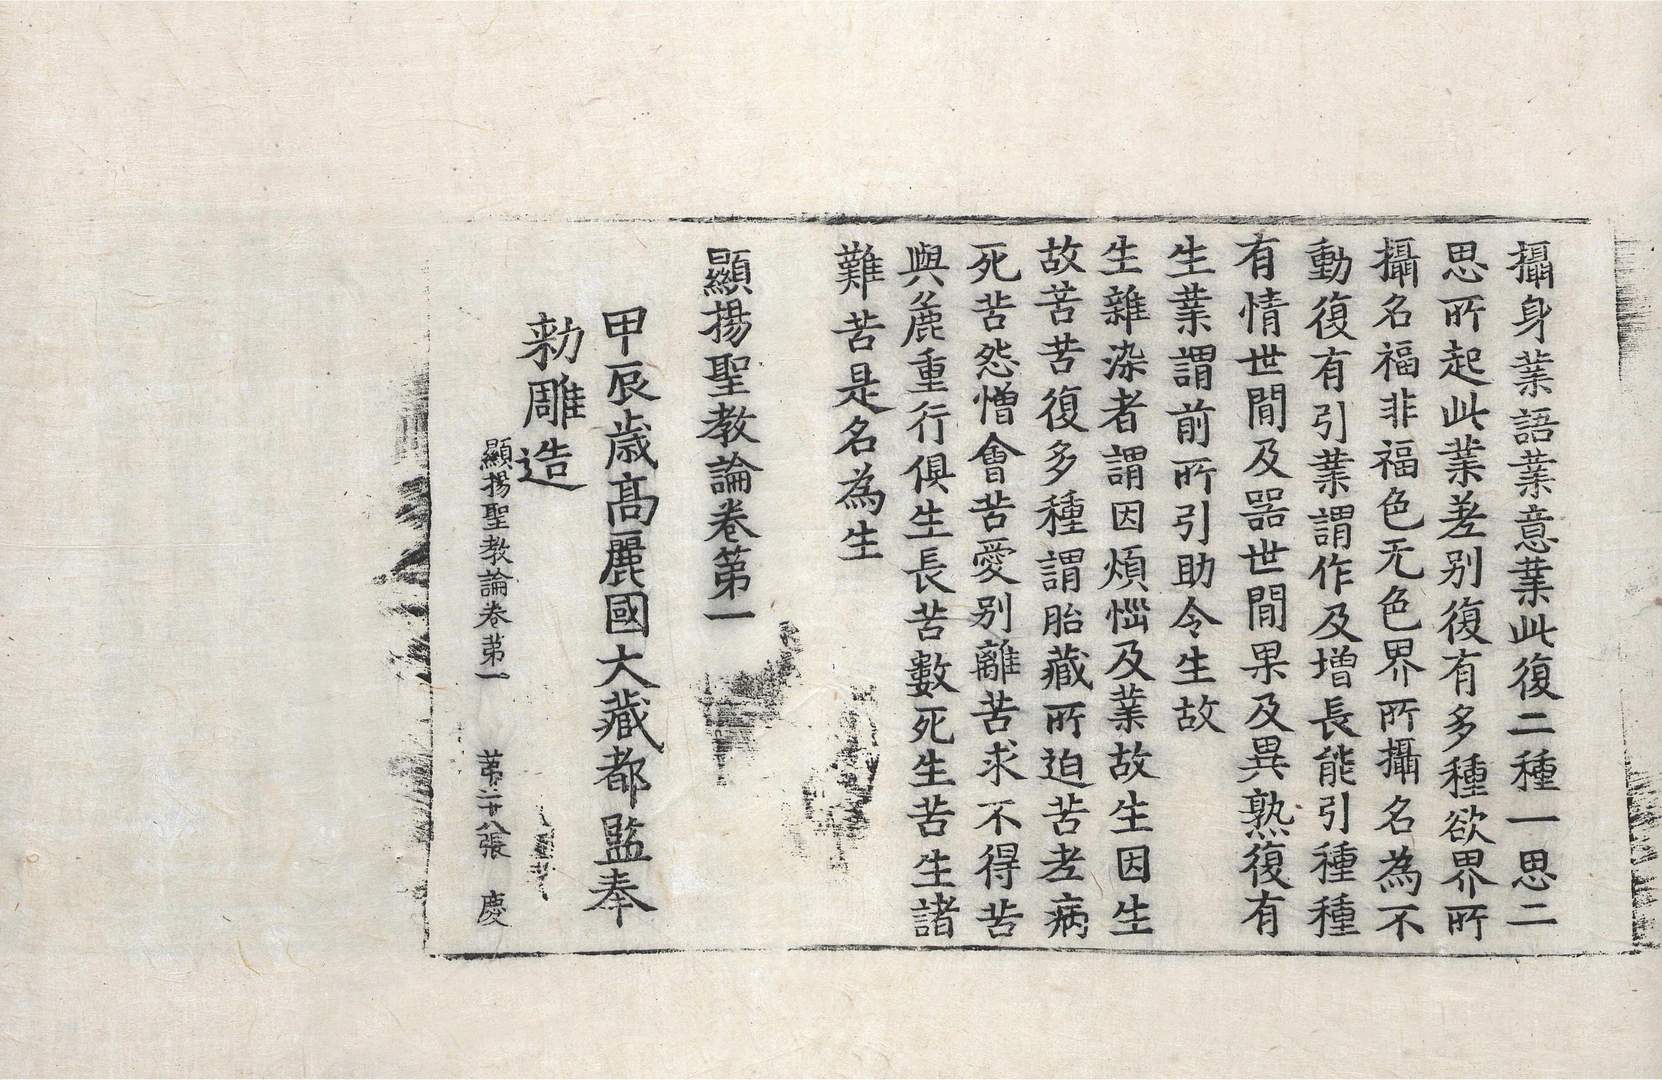 攝身業語業意業此復二種一思二
思所起此業差别復有多種欲界所
攝名福非福色无色界所攝名為不
動復有引業謂作及增長能引種種
有情世間及器世間果及異熟復有
生業謂前所引助令生故
生雜染者謂因煩惱及業故生因生
故苦苦復多種謂胎藏所迫苦老病
死苦怨憎會苦愛别離苦求不得苦
與麁重行俱生長苦數死生苦生諸
難苦是名為生
顯揚聖教論卷第一
甲辰歳高麗國大藏都監奉
勑雕造
顯揚聖教論卷第一 第二十八張 慶